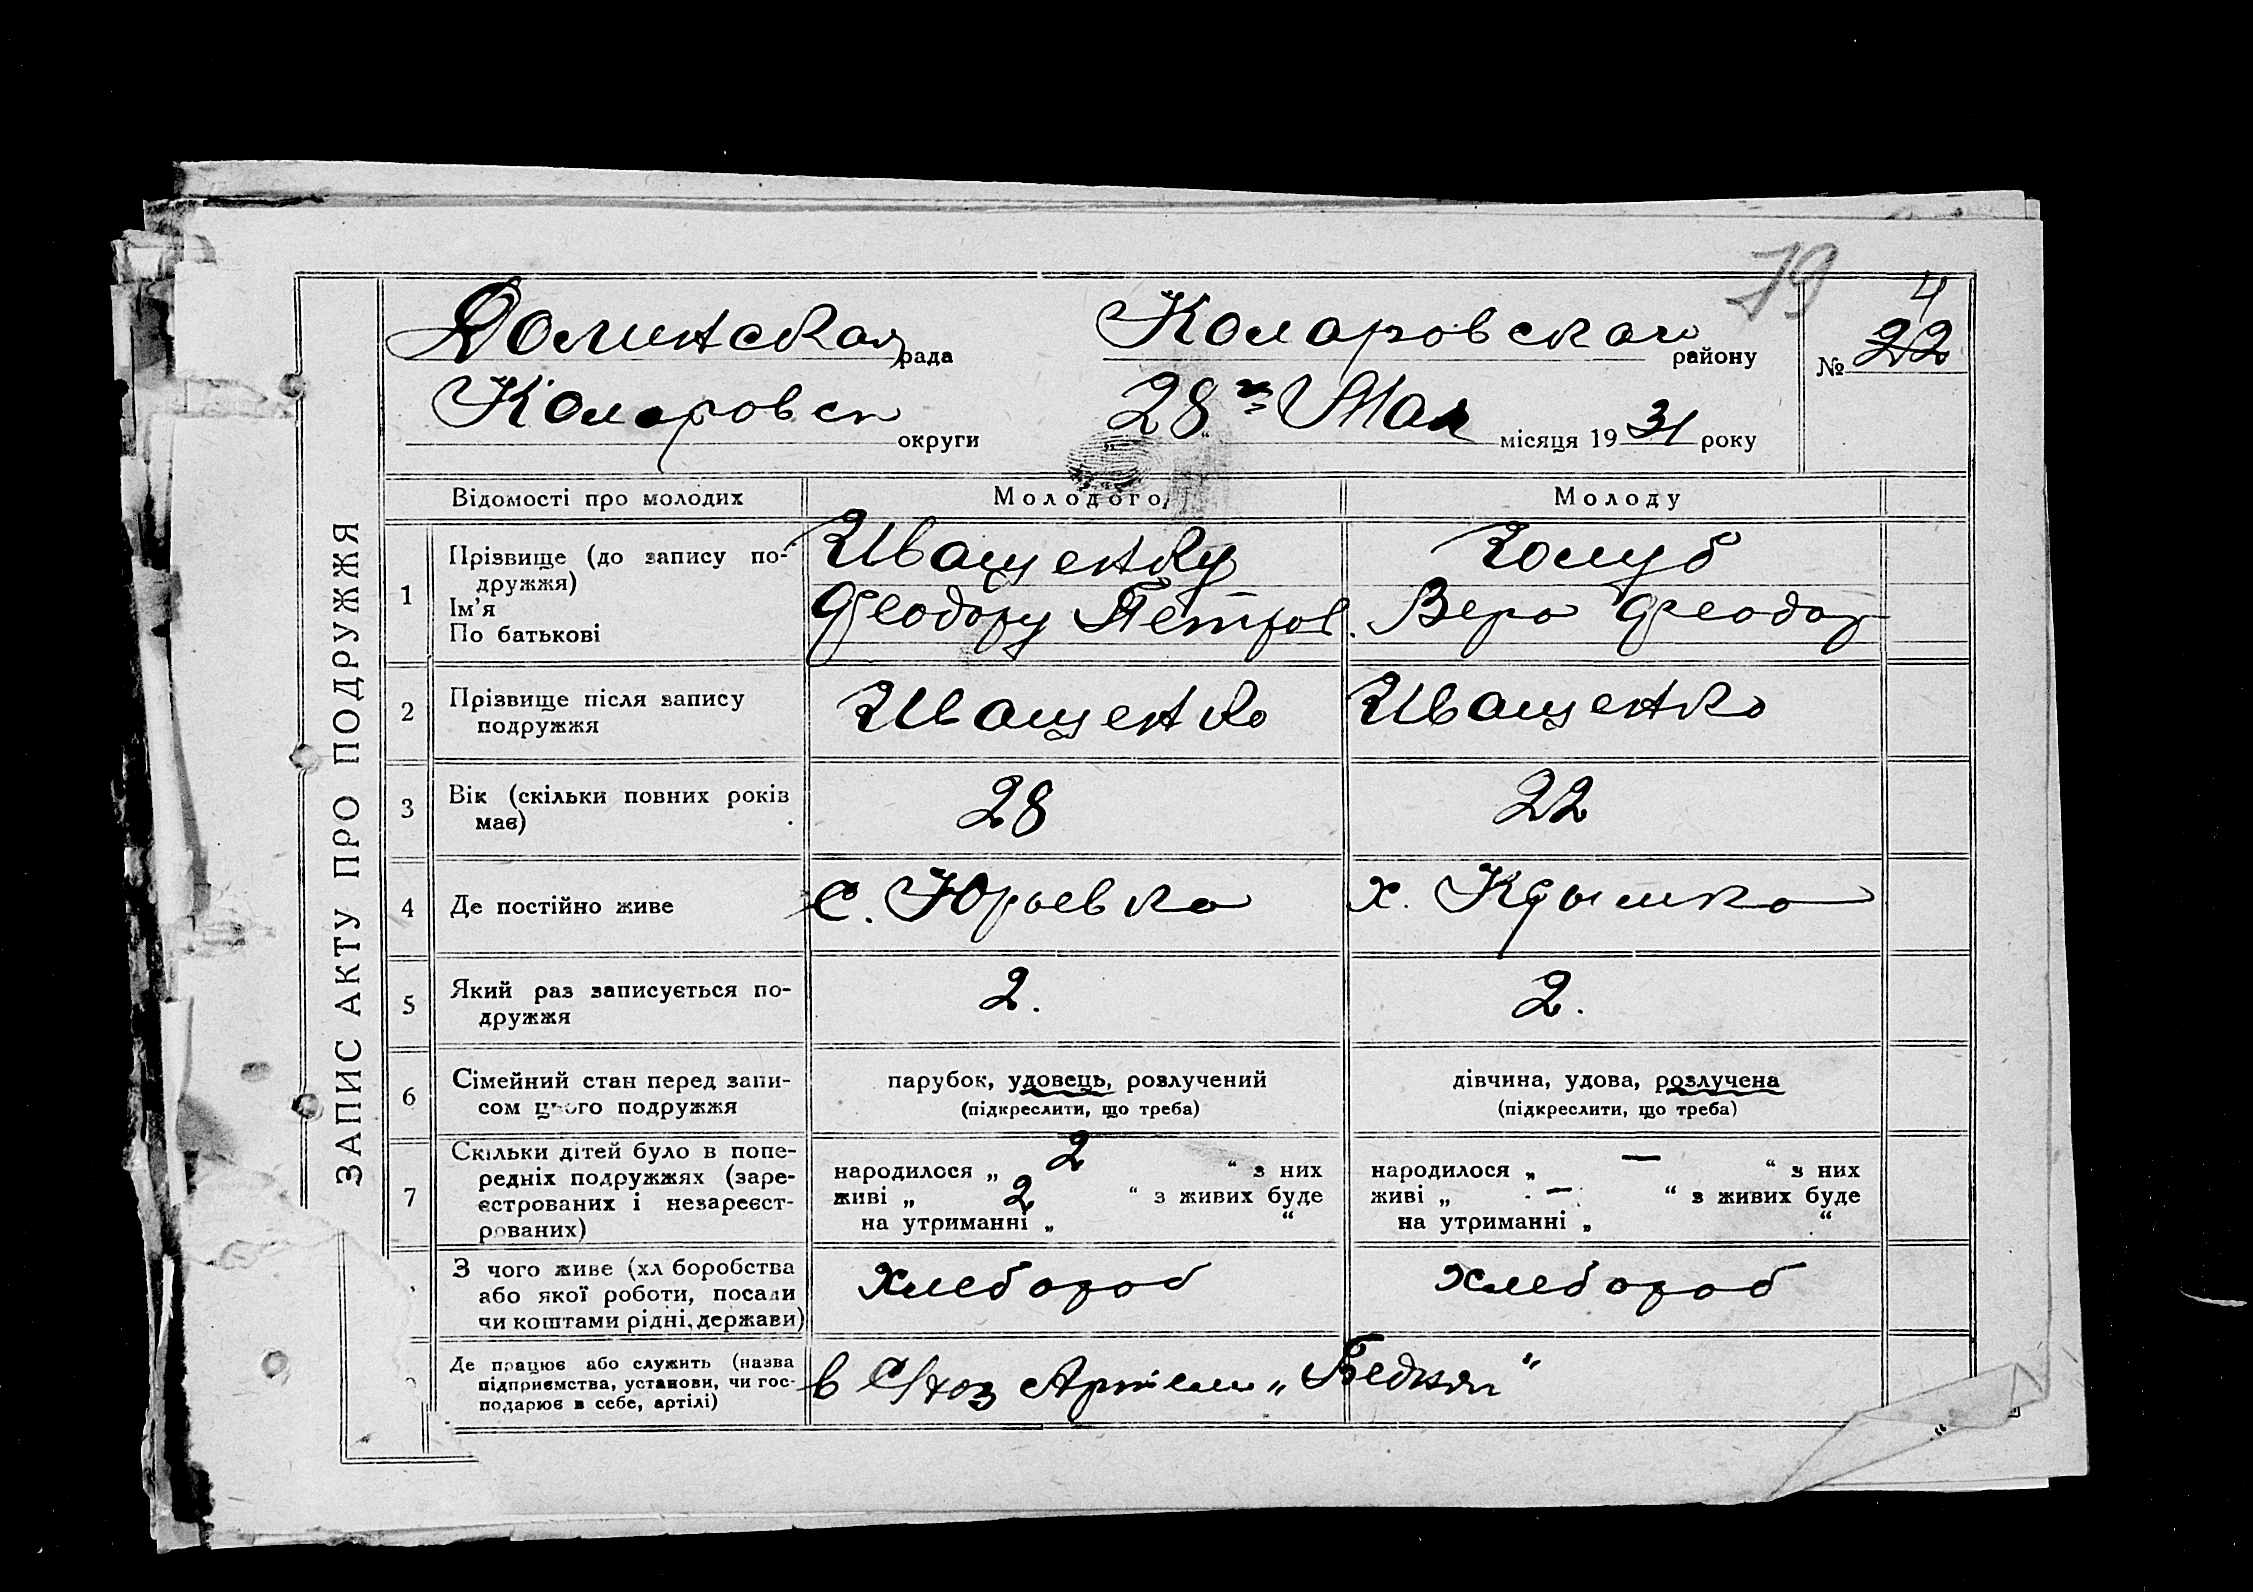 79
Долинская рада Коларовского району № 22 4
Коларовск округи „28“го Мая місяця 1931 року
ЗАПИС АКТУ ПРО ПОДРУЖЖЯ
Відомості про молодих Молодого Молоду
1 Прізвище (до запису по-
дружжя)
Ім’я
По батькові
Иващенку
Феодору Петров.
Голуб
Вера Феодор
2 Прізвище після запису
подружжя
Иващенко Иващенко
3 Вік (скільки повних років
має)
28 22
4 Де постійно живе с. Юрьевка х.
5 Який раз записується по-
дружжя
2. 2.
6 Сімейний стан перед запи-
сом цього подружжя
парубок, удовець, розлучений
(підкреслити, що треба)
дівчина, удова, розлучена
(підкреслити, що треба)
7 Скільки дітей було в попе-
редніх подружжях (заре-
єстрованих і незареєст-
рованих)
народилося „ 2 “ з них
живі „ 2 “ з живих буде
на утриманні „ “
народилося „ — “ з них
живі „ — “ з живих буде
на утриманні „ “
З чого живе (хл боробства
або якої роботи, посади
чи коштами рідні, держави)
хлебороб хлебороб
Де працює або служить (назва
підприємства, установи, чи гос-
подарює в себе, артілі)
в С/хоз Артели „Бедняк“